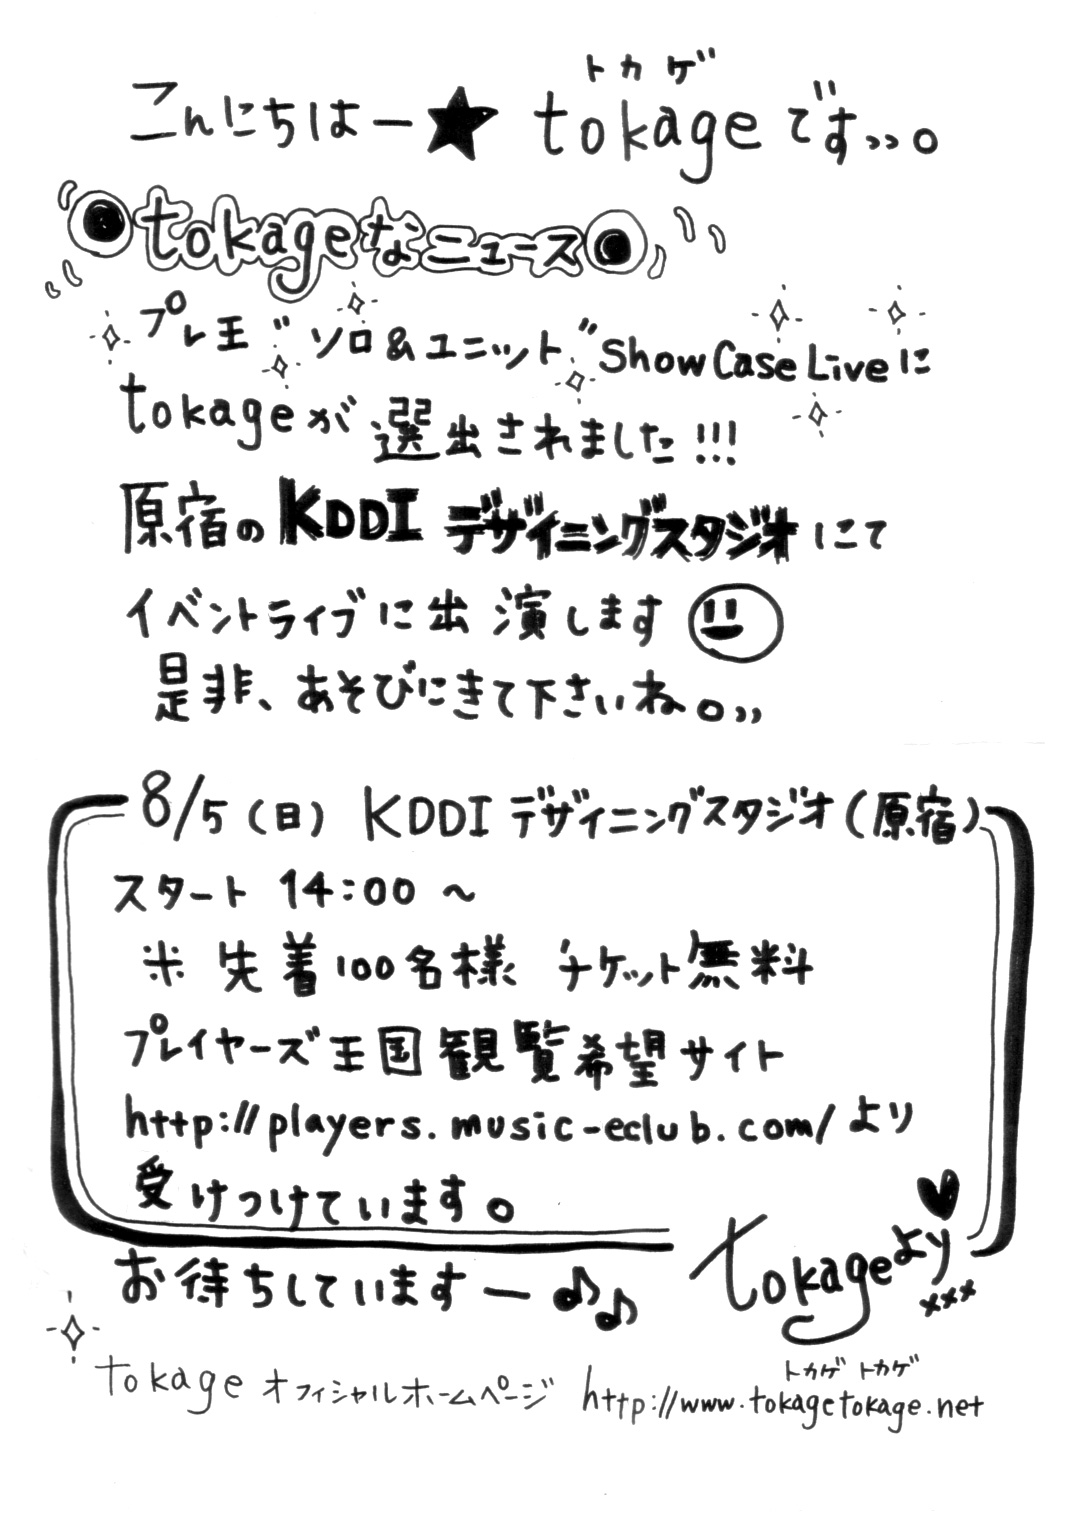 トカゲ
こんにちはー★ tokageです〟。
tokageなニュース
プレ王 "ソロ&ユニット" Show Case Liveに
tokageが 選出されました!!!
原宿の KDDI デザイニングスタジオ にて
イベントライブに出演します
是非、あそびにきて下さいね。〟
8/5(日) KDDI デザイニングスタジオ(原宿)
スタート 14:00 ~
※ 先着100名様 チケット無料
プレイヤーズ王国 観覧希望サイト
http://players.music-eclub.com/ より
受けつけています。
お待ちしていますー♪♪
tokageより♥
×××
トカゲ トカゲ
tokage オフィシャルホームページ http://www.tokagetokage.net